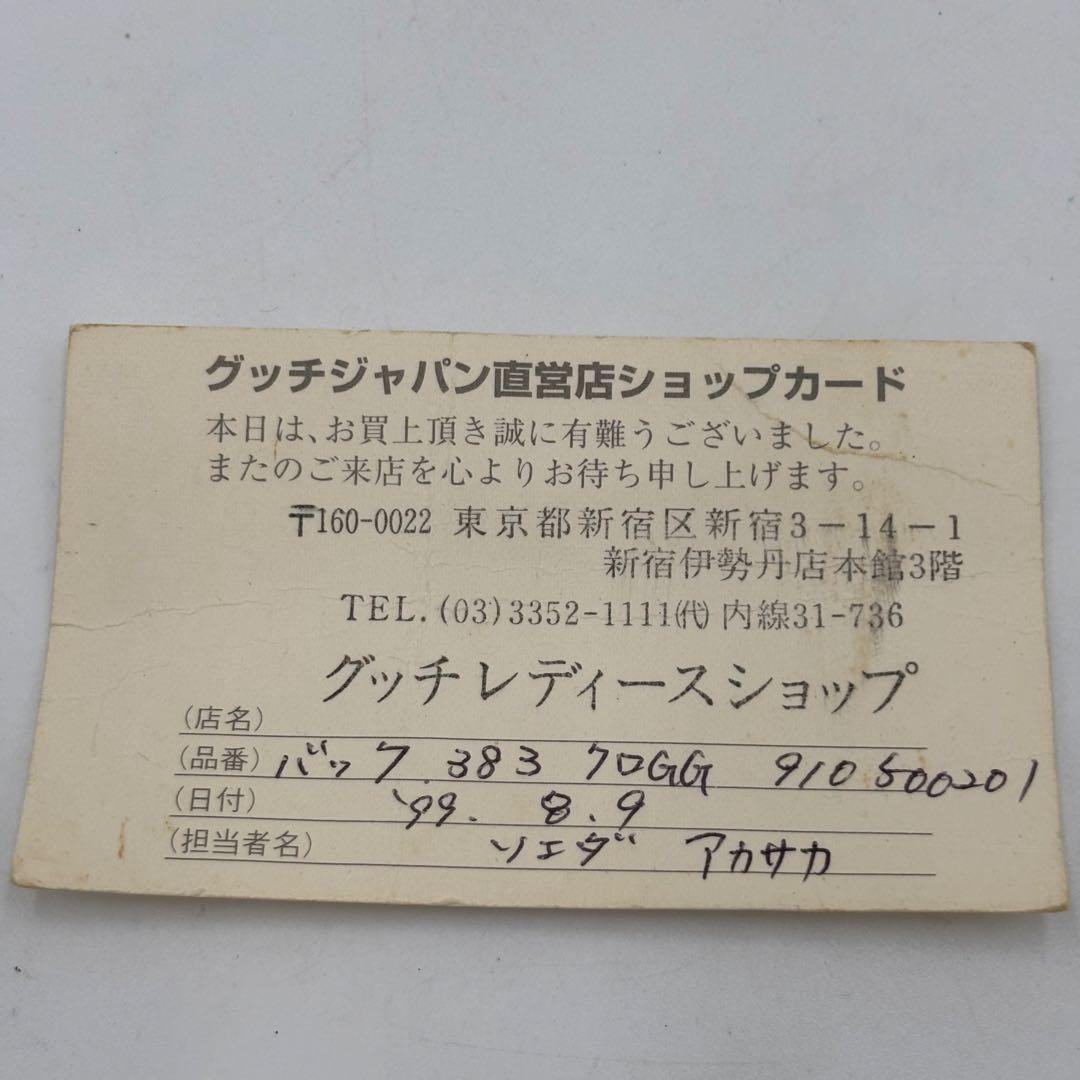 グッチジャパン直営店ショップカード
本日は、お買上頂き誠に有難うございました。
またのご来店を心よりお待ち申し上げます。
〒160-0022 東京都新宿区新宿3-14-1
新宿伊勢丹店本館3階
TEL. (03)3352-1111㈹ 内線31-736
(店名) グッチレディースショップ
(品番) バック 383 クロGG 910500201
(日付) '99. 8. 9
(担当者名) ソエダ アカサカ